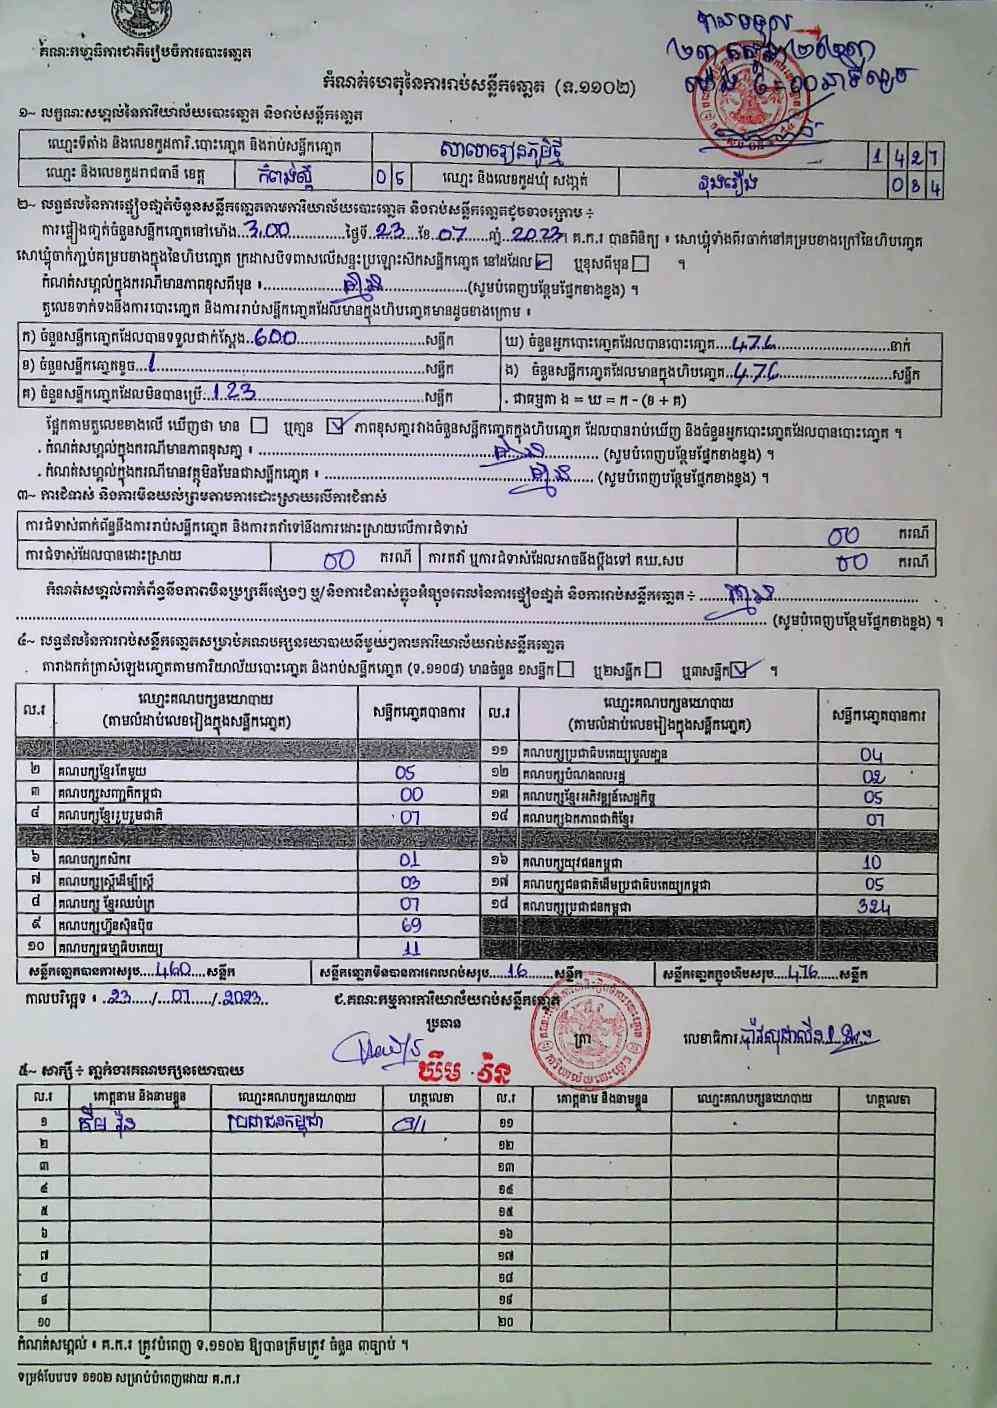 បានទទួល
គណៈកម្មាធិការជាតិរៀបចំការបោះឆ្នោត
កំណត់ហេតុនៃការរាប់សន្លឹកឆ្នោត (ទ.១១០២)
១~ លក្ខណៈសម្គាល់នៃការិយាល័យបោះឆ្នោត និងរាប់សន្លឹកឆ្នោត
ឈ្មោះទីតាំង និងលេខកូដការិ.បោះឆ្នោត និងរាប់សន្លឹកឆ្នោត សាលារៀនភូមិថ្មី 1427
ឈ្មោះ និងលេខកូដរាជធានី ខេត្ត កំពង់ស្ពឺ 05 ឈ្មោះ និងលេខកូដឃុំ សង្កាត់ 084
២~ លទ្ធផលនៃការផ្ទៀងផ្ទាត់ចំនួនសន្លឹកឆ្នោតតាមការិយាល័យបោះឆ្នោត និងរាប់សន្លឹកឆ្នោតដូចខាងក្រោម ÷
ការផ្ទៀងផ្ទាត់ចំនួនសន្លឹកឆ្នោតនៅម៉ោង..3,00..............ថ្ងៃទី..23...ខែ..07....ឆ្នាំ..2023.។ គ.ក.រ បានពិនិត្យ ៖ សោឃ្លុំទាំងពីរចាក់នៅគម្របខាងក្រៅនៃហិបឆ្នោត
សោឃ្លុំចាក់ភ្ជាប់គម្របខាងក្នុងនៃហិបឆ្នោត ក្រដាសបិទពាសលើសន្ទះប្រឡោះសឹកសន្លឹកឆ្នោត នៅដដែល ✓ ឬខុសពីមុន ។
កំណត់សម្គាល់ក្នុងករណីមានភាពខុសពីមុន ៖..............គ្មាន......................(សូមបំពេញបន្ថែមផ្នែកខាងខ្នង) ។
តួលេខទាក់ទងនឹងការបោះឆ្នោត និងការរាប់សន្លឹកឆ្នោតដែលមានក្នុងហិបឆ្នោតមានដូចខាងក្រោម ៖
ក) ចំនួនសន្លឹកឆ្នោតដែលបានទទួលជាក់ស្ដែង..600......................សន្លឹក ឃ) ចំនួនអ្នកបោះឆ្នោតដែលបានបោះឆ្នោត....476....................នាក់
ខ) ចំនួនសន្លឹកឆ្នោតខូច..1......................សន្លឹក ង) ចំនួនសន្លឹកឆ្នោតដែលមានក្នុងហិបឆ្នោត..476....................សន្លឹក
គ) ចំនួនសន្លឹកឆ្នោតដែលមិនបានប្រើ..123......................សន្លឹក . ជាធម្មតា ង = ឃ = ក - (ខ + គ)
ផ្អែកតាមតួលេខខាងលើ ឃើញថា មាន ឬគ្មាន ✓ ភាពខុសគ្នារវាងចំនួនសន្លឹកឆ្នោតក្នុងហិបឆ្នោត ដែលបានរាប់ឃើញ និងចំនួនអ្នកបោះឆ្នោតដែលបានបោះឆ្នោត ។
. កំណត់សម្គាល់ក្នុងករណីមានភាពខុសគ្នា ៖ ....................គ្មាន.............. (សូមបំពេញបន្ថែមផ្នែកខាងខ្នង) ។
. កំណត់សម្គាល់ក្នុងករណីមានវត្ថុមិនមែនជាសន្លឹកឆ្នោត ៖ ....................គ្មាន.... (សូមបំពេញបន្ថែមផ្នែកខាងខ្នង) ។
៣~ ការជំទាស់ និងការមិនយល់ព្រមតាមការដោះស្រាយលើការជំទាស់
ការជំទាស់ពាក់ព័ន្ធនឹងការរាប់សន្លឹកឆ្នោត និងការតវ៉ាទៅនឹងការដោះស្រាយលើការជំទាស់ 00 ករណី
ការជំទាស់ដែលបានដោះស្រាយ 00 ករណី ការតវ៉ា ឬការជំទាស់ដែលអាចនឹងប្ដឹងទៅ គឃ.សប 00 ករណី
កំណត់សម្គាល់ពាក់ព័ន្ធនឹងភាពមិនប្រក្រតីផ្សេងៗ ឬ/និងការជំទាស់ក្នុងអំឡុងពេលនៃការផ្ទៀងផ្ទាត់ និងការរាប់សន្លឹកឆ្នោត ÷ ......គ្មាន....................
(សូមបំពេញបន្ថែមផ្នែកខាងខ្នង) ។
៤~ លទ្ធផលនៃការរាប់សន្លឹកឆ្នោតសម្រាប់គណបក្សនយោបាយនីមួយៗតាមការិយាល័យរាប់សន្លឹកឆ្នោត
តារាងកត់ត្រាសំឡេងឆ្នោតតាមការិយាល័យបោះឆ្នោត និងរាប់សន្លឹកឆ្នោត (ទ.១១០៨) មានចំនួន ១សន្លឹក ឬ២សន្លឹក ឬ៣សន្លឹក ✓ ។
ល.រ ឈ្មោះគណបក្សនយោបាយ (តាមលំដាប់លេខរៀងក្នុងសន្លឹកឆ្នោត) សន្លឹកឆ្នោតបានការ ល.រ ឈ្មោះគណបក្សនយោបាយ (តាមលំដាប់លេខរៀងក្នុងសន្លឹកឆ្នោត) សន្លឹកឆ្នោតបានការ
១១ គណបក្សប្រជាធិបតេយ្យមូលដ្ឋាន 04
២ គណបក្សខ្មែរតែមួយ 05 ១២ គណបក្សបំណងពលរដ្ឋ 02
៣ គណបក្សសញ្ជាតិកម្ពុជា 00 ១៣ គណបក្សខ្មែរអភិវឌ្ឍន៍សេដ្ឋកិច្ច 05
៤ គណបក្សខ្មែររួបរួមជាតិ 07 ១៤ គណបក្សឯកភាពជាតិខ្មែរ 07
៦ គណបក្សកសិករ 01 ១៦ គណបក្សយុវជនកម្ពុជា 10
៧ គណបក្សស្ត្រីដើម្បីស្ត្រី 03 ១៧ គណបក្សជនជាតិដើមប្រជាធិបតេយ្យកម្ពុជា 05
៨ គណបក្ស ខ្មែរឈប់ក្រ 07 ១៨ គណបក្សប្រជាជនកម្ពុជា 324
៩ គណបក្សហ៊្វុនស៊ិនប៉ិច 69
១០ គណបក្សធម្មាធិបតេយ្យ 11
សន្លឹកឆ្នោតបានការសរុប....460....សន្លឹក សន្លឹកឆ្នោតមិនបានការពេលរាប់សរុប....16......សន្លឹក សន្លឹកឆ្នោតក្នុងហិបសរុប....476....សន្លឹក
កាលបរិច្ឆេទ ៖ .23...../....07...../.2023.. ជ.គណៈកម្មការការិយាល័យរាប់សន្លឹកឆ្នោត
ប្រធាន
ត្រា
លេខាធិការ
ឃឹម រ៉ន
៥~ សាក្សី ÷ ភ្នាក់ងារគណបក្សនយោបាយ
ល.រ គោត្តនាម និងនាមខ្លួន ឈ្មោះគណបក្សនយោបាយ ហត្ថលេខា ល.រ គោត្តនាម និងនាមខ្លួន ឈ្មោះគណបក្សនយោបាយ ហត្ថលេខា
១ ប្រជាជនកម្ពុជា ១១
២ ១២
៣ ១៣
៤ ១៤
៥ ១៥
៦ ១៦
៧ ១៧
៨ ១៨
៩ ១៩
១០ ២០
កំណត់សម្គាល់ ៖ គ.ក.រ ត្រូវបំពេញ ទ.១១០២ ឱ្យបានត្រឹមត្រូវ ចំនួន ៣ច្បាប់ ។
ទម្រង់បែបបទ ១១០២ សម្រាប់បំពេញដោយ គ.ក.រ